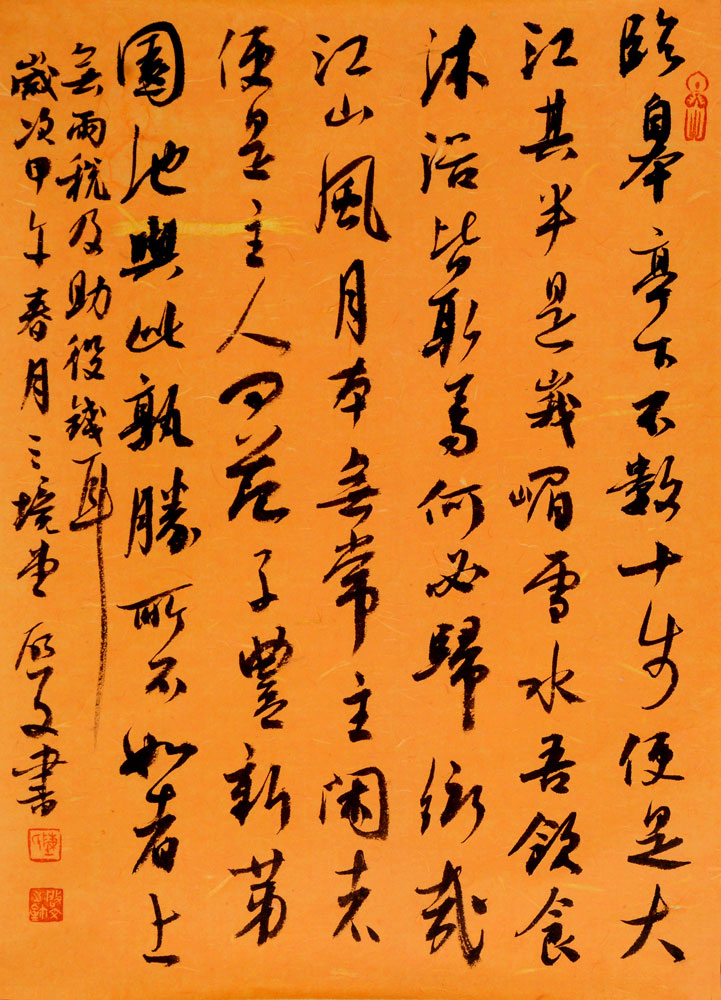 臨皋亭下不數十步便是大
江其半是峩嵋雪水吾飲食
沐浴皆取焉何必歸鄉哉
江山風月本無常主閑者
便是主人問范子豐新第
園池與此孰勝所不如者上
無兩稅及助役錢耳
歲次甲午春月三境堂啟文書